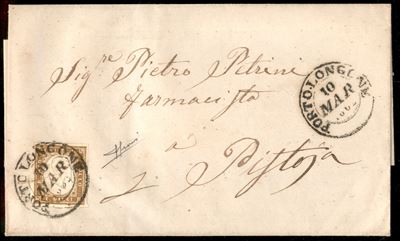 Sig.re Pietro Petrini
Farmacista
a
Pistoja
PORTO LONGONE
10
MAR
PORTO LONGONE
10
MAR